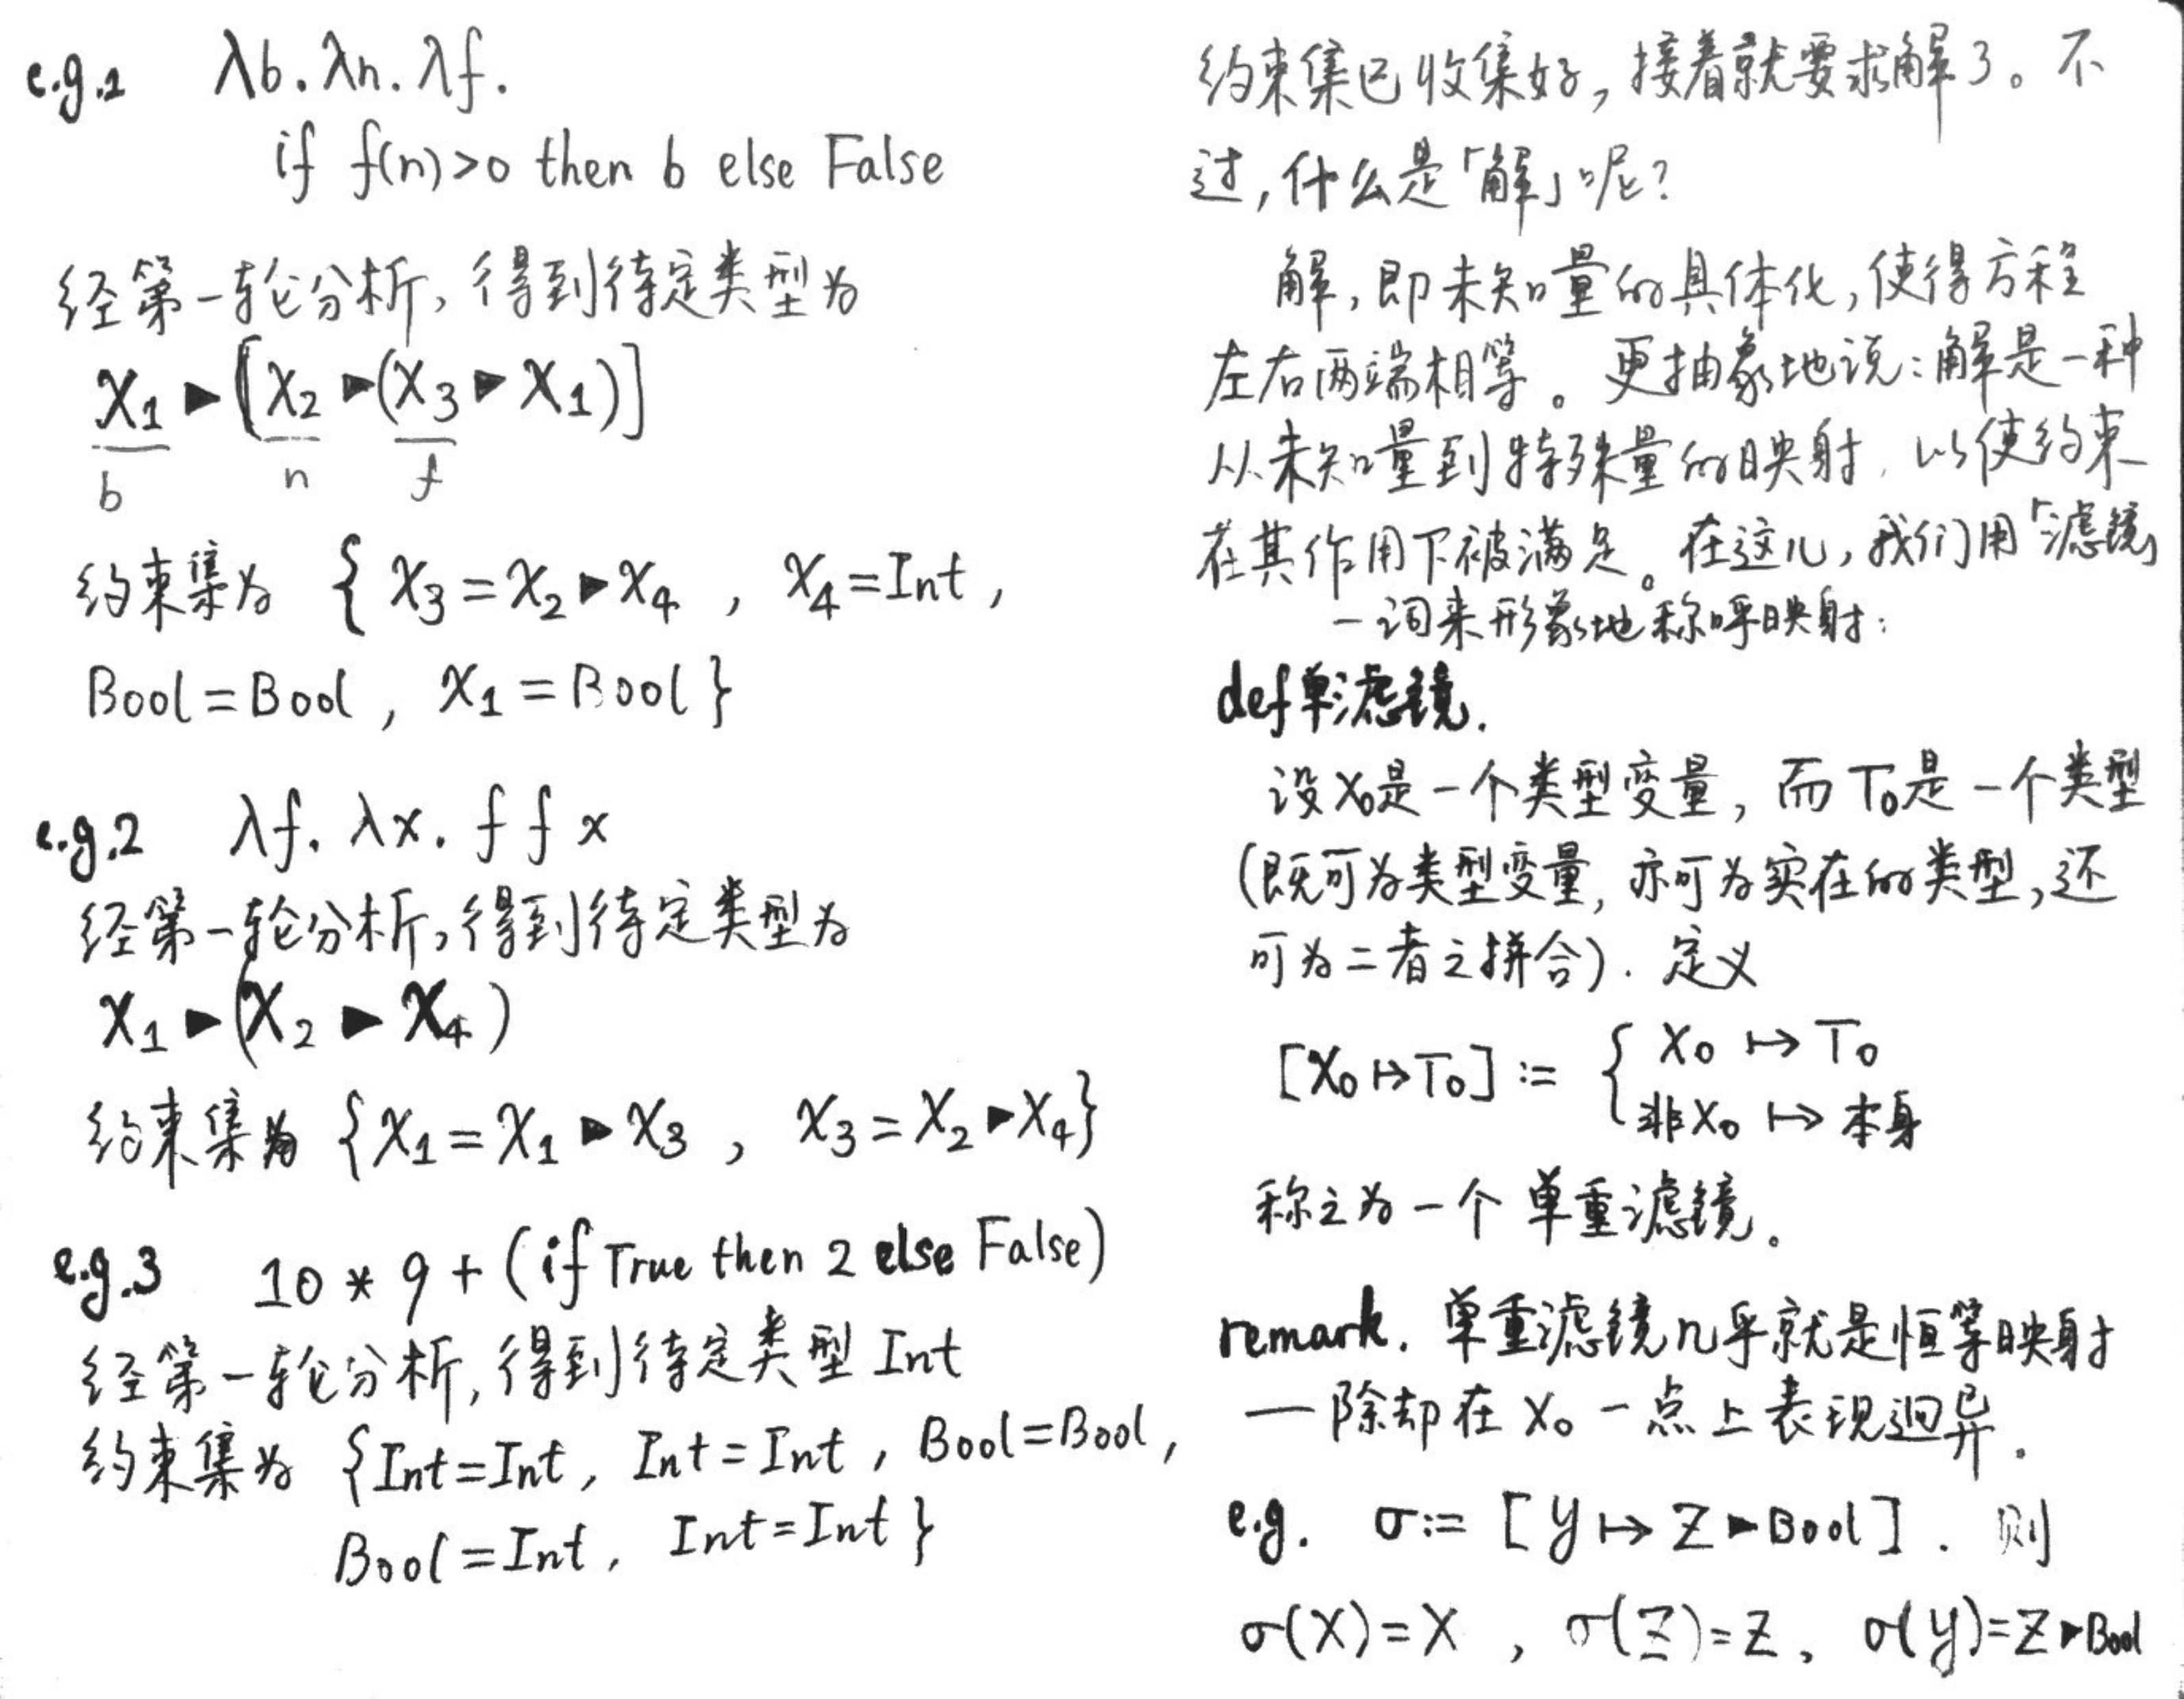 e.g.1 λb. λn. λf.
if f(n)>0 then b else False
经第一轮分析, 得到待定类型为
X₁ ▶ [X₂ ▶ (X₃ ▶ X₁)]
b n f
约束集为 { X₃ = X₂ ▶ X₄ , X₄ = Int ,
Bool = Bool , X₁ = Bool }
e.g.2 λf. λx. f f x
经第一轮分析,得到待定类型为
X₁ ▶ (X₂ ▶ X₄)
约束集为 {X₁ = X₁ ▶ X₃ , X₃ = X₂ ▶ X₄}
e.g.3 10 * 9 + (if True then 2 else False)
经第一轮分析,得到待定类型 Int
约束集为 {Int=Int, Int=Int, Bool=Bool,
Bool=Int, Int=Int }
约束集已收集好,接着就要求解了。不
过,什么是「解」呢?
解,即未知量的具体化,使得方程
左右两端相等。更抽象地说:解是一种
从未知量到特殊量的映射,以使约束
在其作用下被满足。在这儿,我们用「滤镜」
一词来形象地称呼映射:
def 单滤镜.
设X₀是一个类型变量, 而T₀是一个类型
(既可为类型变量, 亦可为实在的类型,还
可为二者之拼合). 定义
[X₀ ↦ T₀] := { X₀ ↦ T₀
非X₀ ↦ 本身
称之为一个 单重滤镜。
remark. 单重滤镜几乎就是恒等映射
—除却在 X₀ 一点上表现迥异.
e.g. σ:= [Y ↦ Z ▶ Bool] . 则
σ(X)=X , σ(Z)=Z, σ(Y)=Z▶Bool